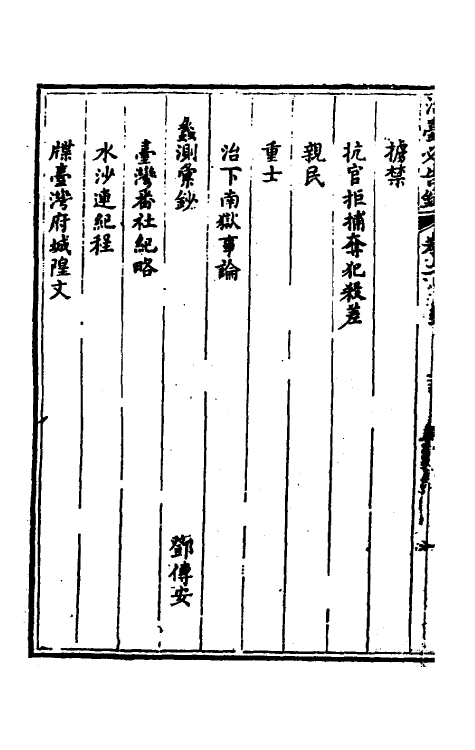 治臺必告錄
擄禁
抗官拒捕奪犯殺差
親民
重士
治下南獄事論
蠡測彙鈔 鄧傳安
臺灣番社紀略
水沙連紀程
牒臺灣府城隍文